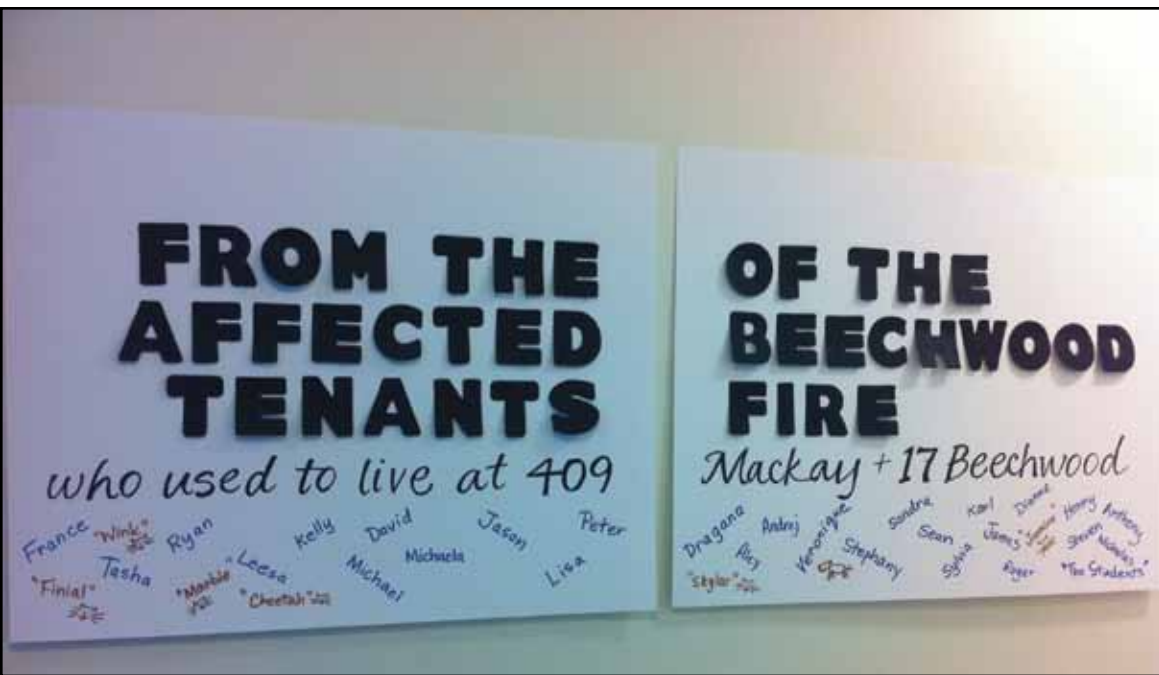 FROM THE
AFFECTED
TENANTS
who used to live at 409
France "Wink" Ryan Kelly David Jason Peter
Tasha "Leesa Michael Michaela Lisa
"Finial" "Marble" "Cheetah"
OF THE
BEECHWOOD
FIRE
Mackay + 17 Beechwood
Dragana Andrij Veronique Sandra Karl Dianne Henry Anthony
Stephany Sean Sylvia James Steven Nicholas
"Skylar" Roger "The Students"